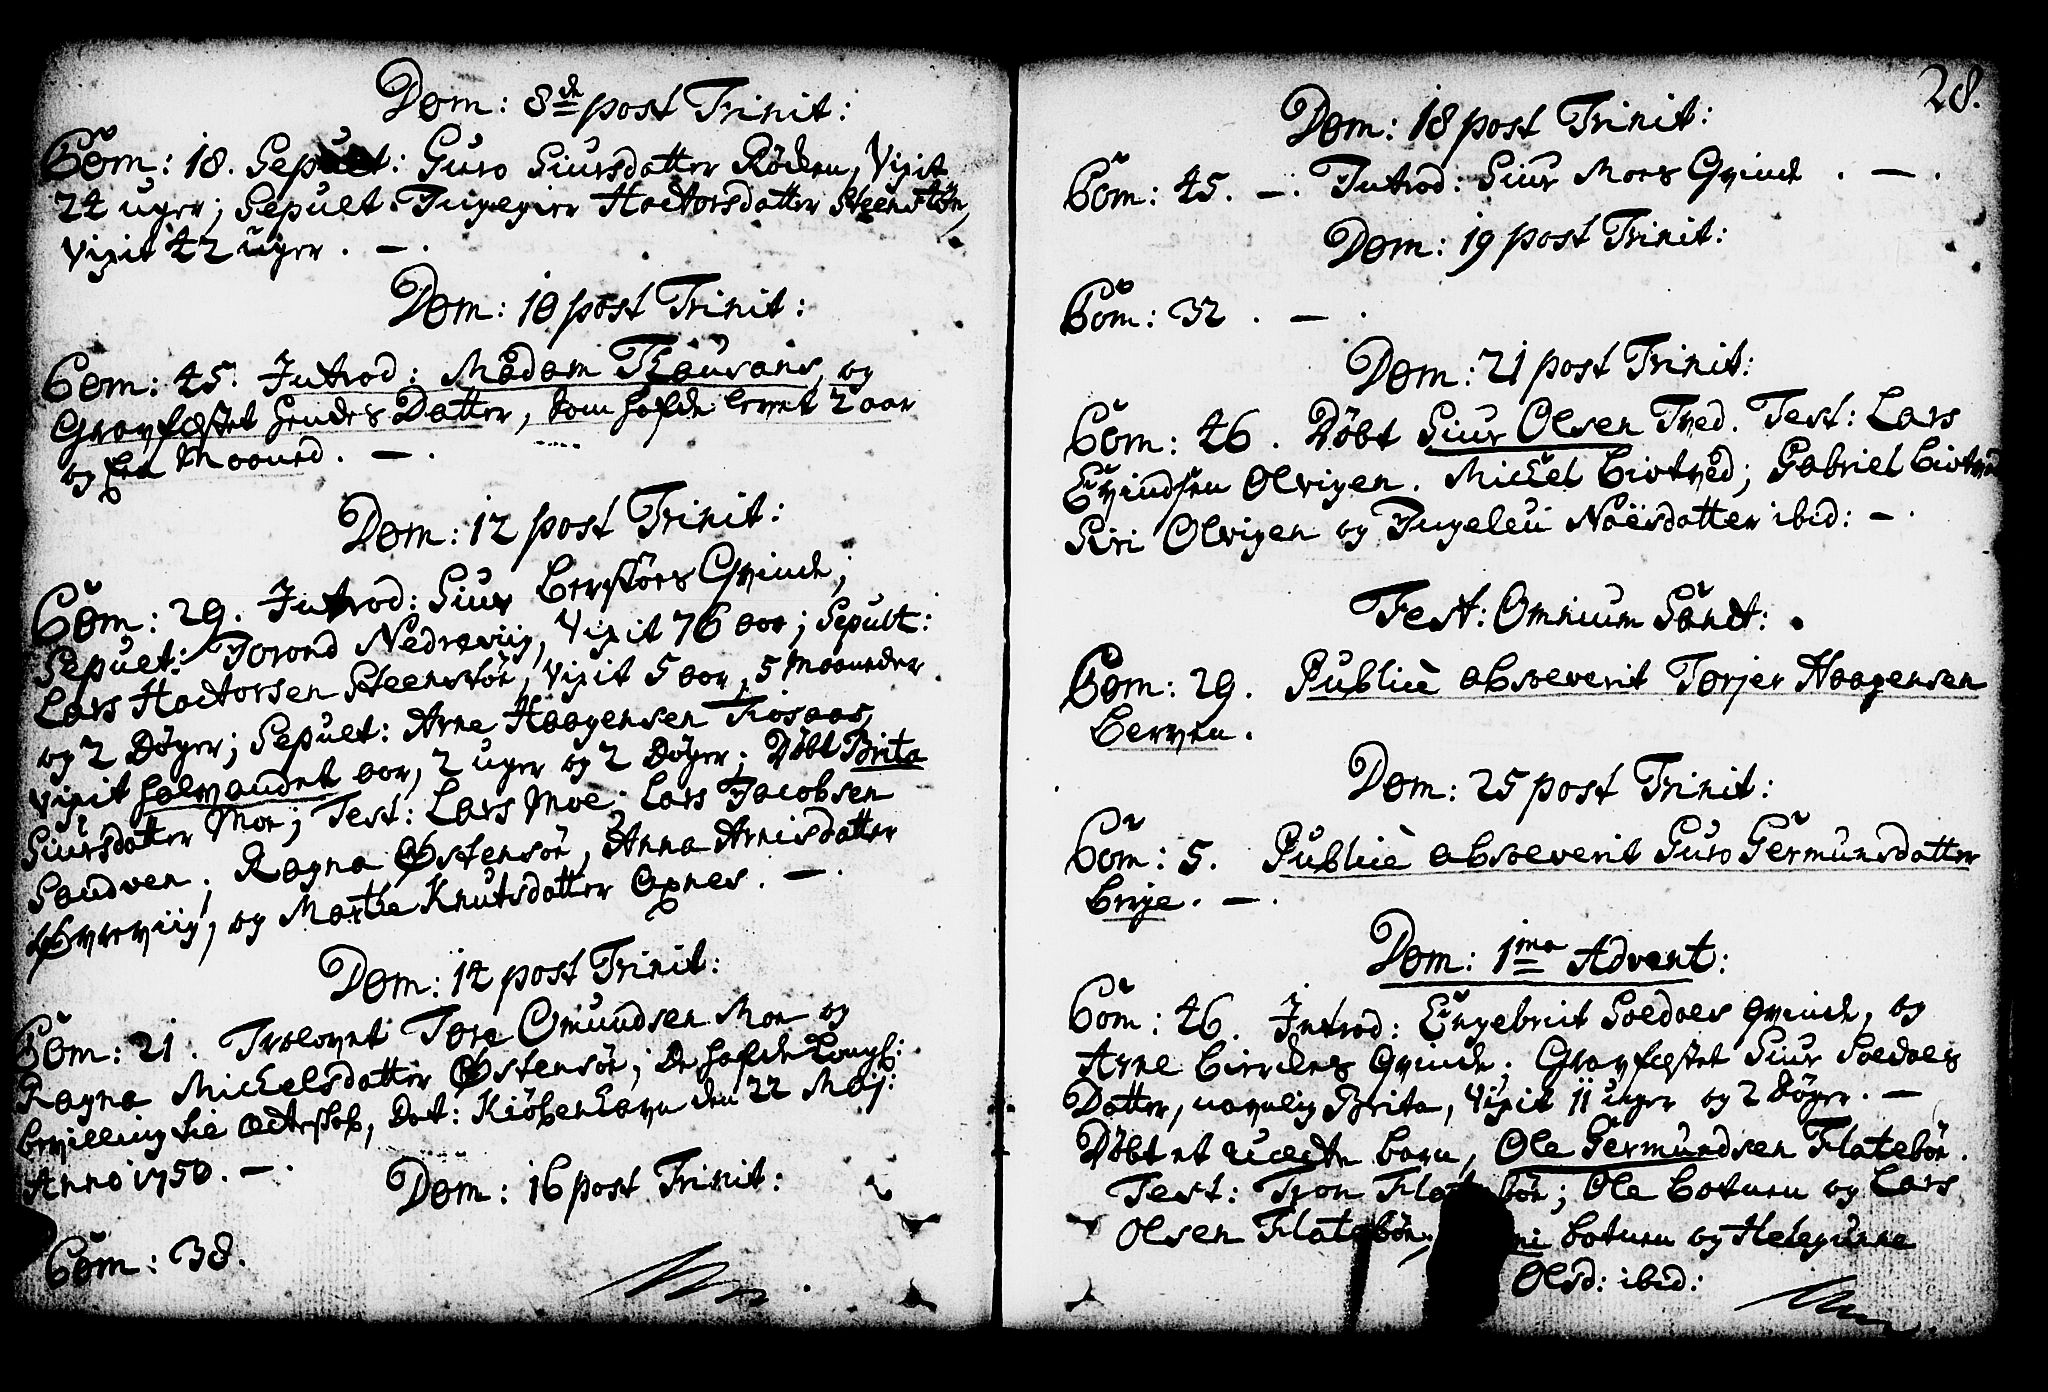 Dom: 8de post Trinit:
Com: 18. Sepult: Guro Siursdatter Röden, Vixit
24 uger; Sepult. Ingegier Hactorsdatter Steenstön,
vixit 42 uger. — .
Dom: 10 post Trinit:
Com: 45. Introd: Madam Thausans, og
Gravfæstet hendes Datter, som hafde levet 2 aar
og En Maaned. — .
Dom: 12 post Trinit:
Com: 29. Introd: Siur Berstöes Qvinde;
Sepult: Torond Nedreviig, Vixit 76 aar; Sepult:
Lars Hactorsen Steenstön, vixit 5 aar, 5 Maaneder
og 2 Døger; Sepult: Arne Haagensen Tiosaas,
vixit halvandet aar, 2 uger og 2 Døger; Døbt Brita
Siursdatter Moe; Test: Lars Moe, Lars Jacobsen
Sandven; Ragna Østensön, Anna Arnisdatter
Øvreviig, og Martha Knutsdatter Axnes. — .
Dom: 14 post Trinit:
Com: 21. Trolovet Tore Omundsen Moe og
Ragna Mickelsdatter Østensöe; De hafde Kongl:
bevilling til Ecteskab, Dat: Kiöbenhavn den 22 Maj:
Anno 1750. — .
Dom: 16 post Trinit:
Com: 38.
28.
Dom: 18 post Trinit:
Com: 45. — . Introd: Siur Moes Qvinde. — .
Dom: 19 post Trinit:
Com: 32. — .
Dom: 21 post Trinit:
Com: 46. Døbt Siur Olsen Tved. Test: Lars
Evindsen Alvigen. Mickel Birtved; Gabriel Birtved
Siri Alvigen og Ingeleu Noësdatter ibid: — .
Fest: Omnium Sanct:.
Com: 29. Publicè absolverit Torjer Haagensen
Berven.
Dom: 25 post Trinit:
Com: 5. Publicè absolverit Guro Germunsdatter
Birje. — .
Dom: 1ma Advent:
Com: 46. Introd: Engebrit Soldals qvinde, og
Arne Birkenes Qvinde; Gravfæstet Siur Soldals
Datter, navnlig Brita, Vixit 11 uger og 2 Døger. —
Døbt et uægte barn, Ole Germundsen Flatebön.
Test: Tron bön; Ole Botunn og Lars
Olsen Flatebön, Botunn og Helegunne
Olsd: ibid: